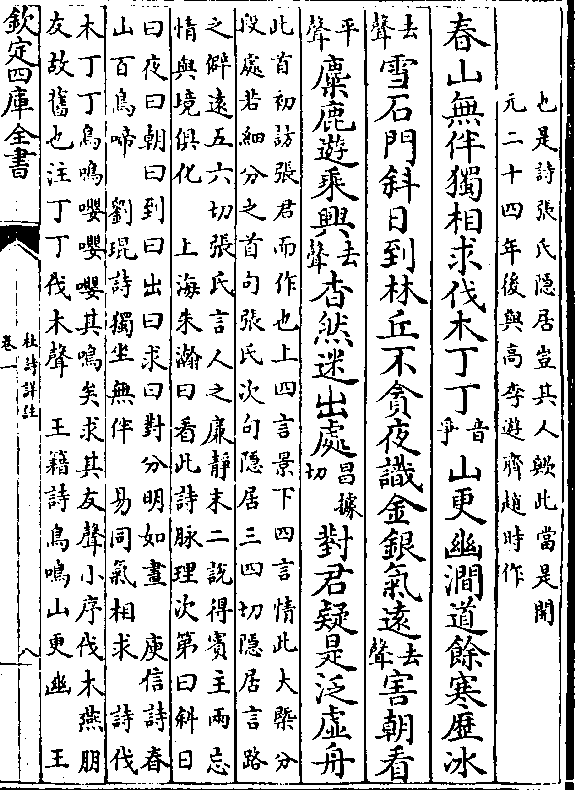 也是詩張氏隱居豈其人歟此當是開
元二十四年後與高李遊齊趙時作
春山無伴獨相求伐木丁丁音爭山更幽澗道餘寒歷冰
去聲雪石門斜日到林丘不貪夜識金銀氣遠去聲害朝看
平聲麋鹿遊乘興去聲杳然迷出處昌據切對君疑是泛虛舟
此首初訪張君而作也上四言景下四言情此大槩分
段處若細分之首句張氏次句隱居三四切隱居言路
之僻遠五六切張氏言人之廉靜末二說得賓主兩忘
情與境俱化　上海朱瀚曰看此詩脉理次第曰斜日
曰夜曰朝曰到曰出曰求曰對分明如畫　庾信詩春
山百鳥啼　劉琨詩獨坐無伴　易同氣相求　詩伐
木丁丁鳥鳴嚶嚶嚶其鳴矣求其友聲小序伐木燕朋
友故舊也注丁丁伐木聲　王籍詩鳥鳴山更幽　王
欽定四庫全書
杜詩詳註
卷一
八